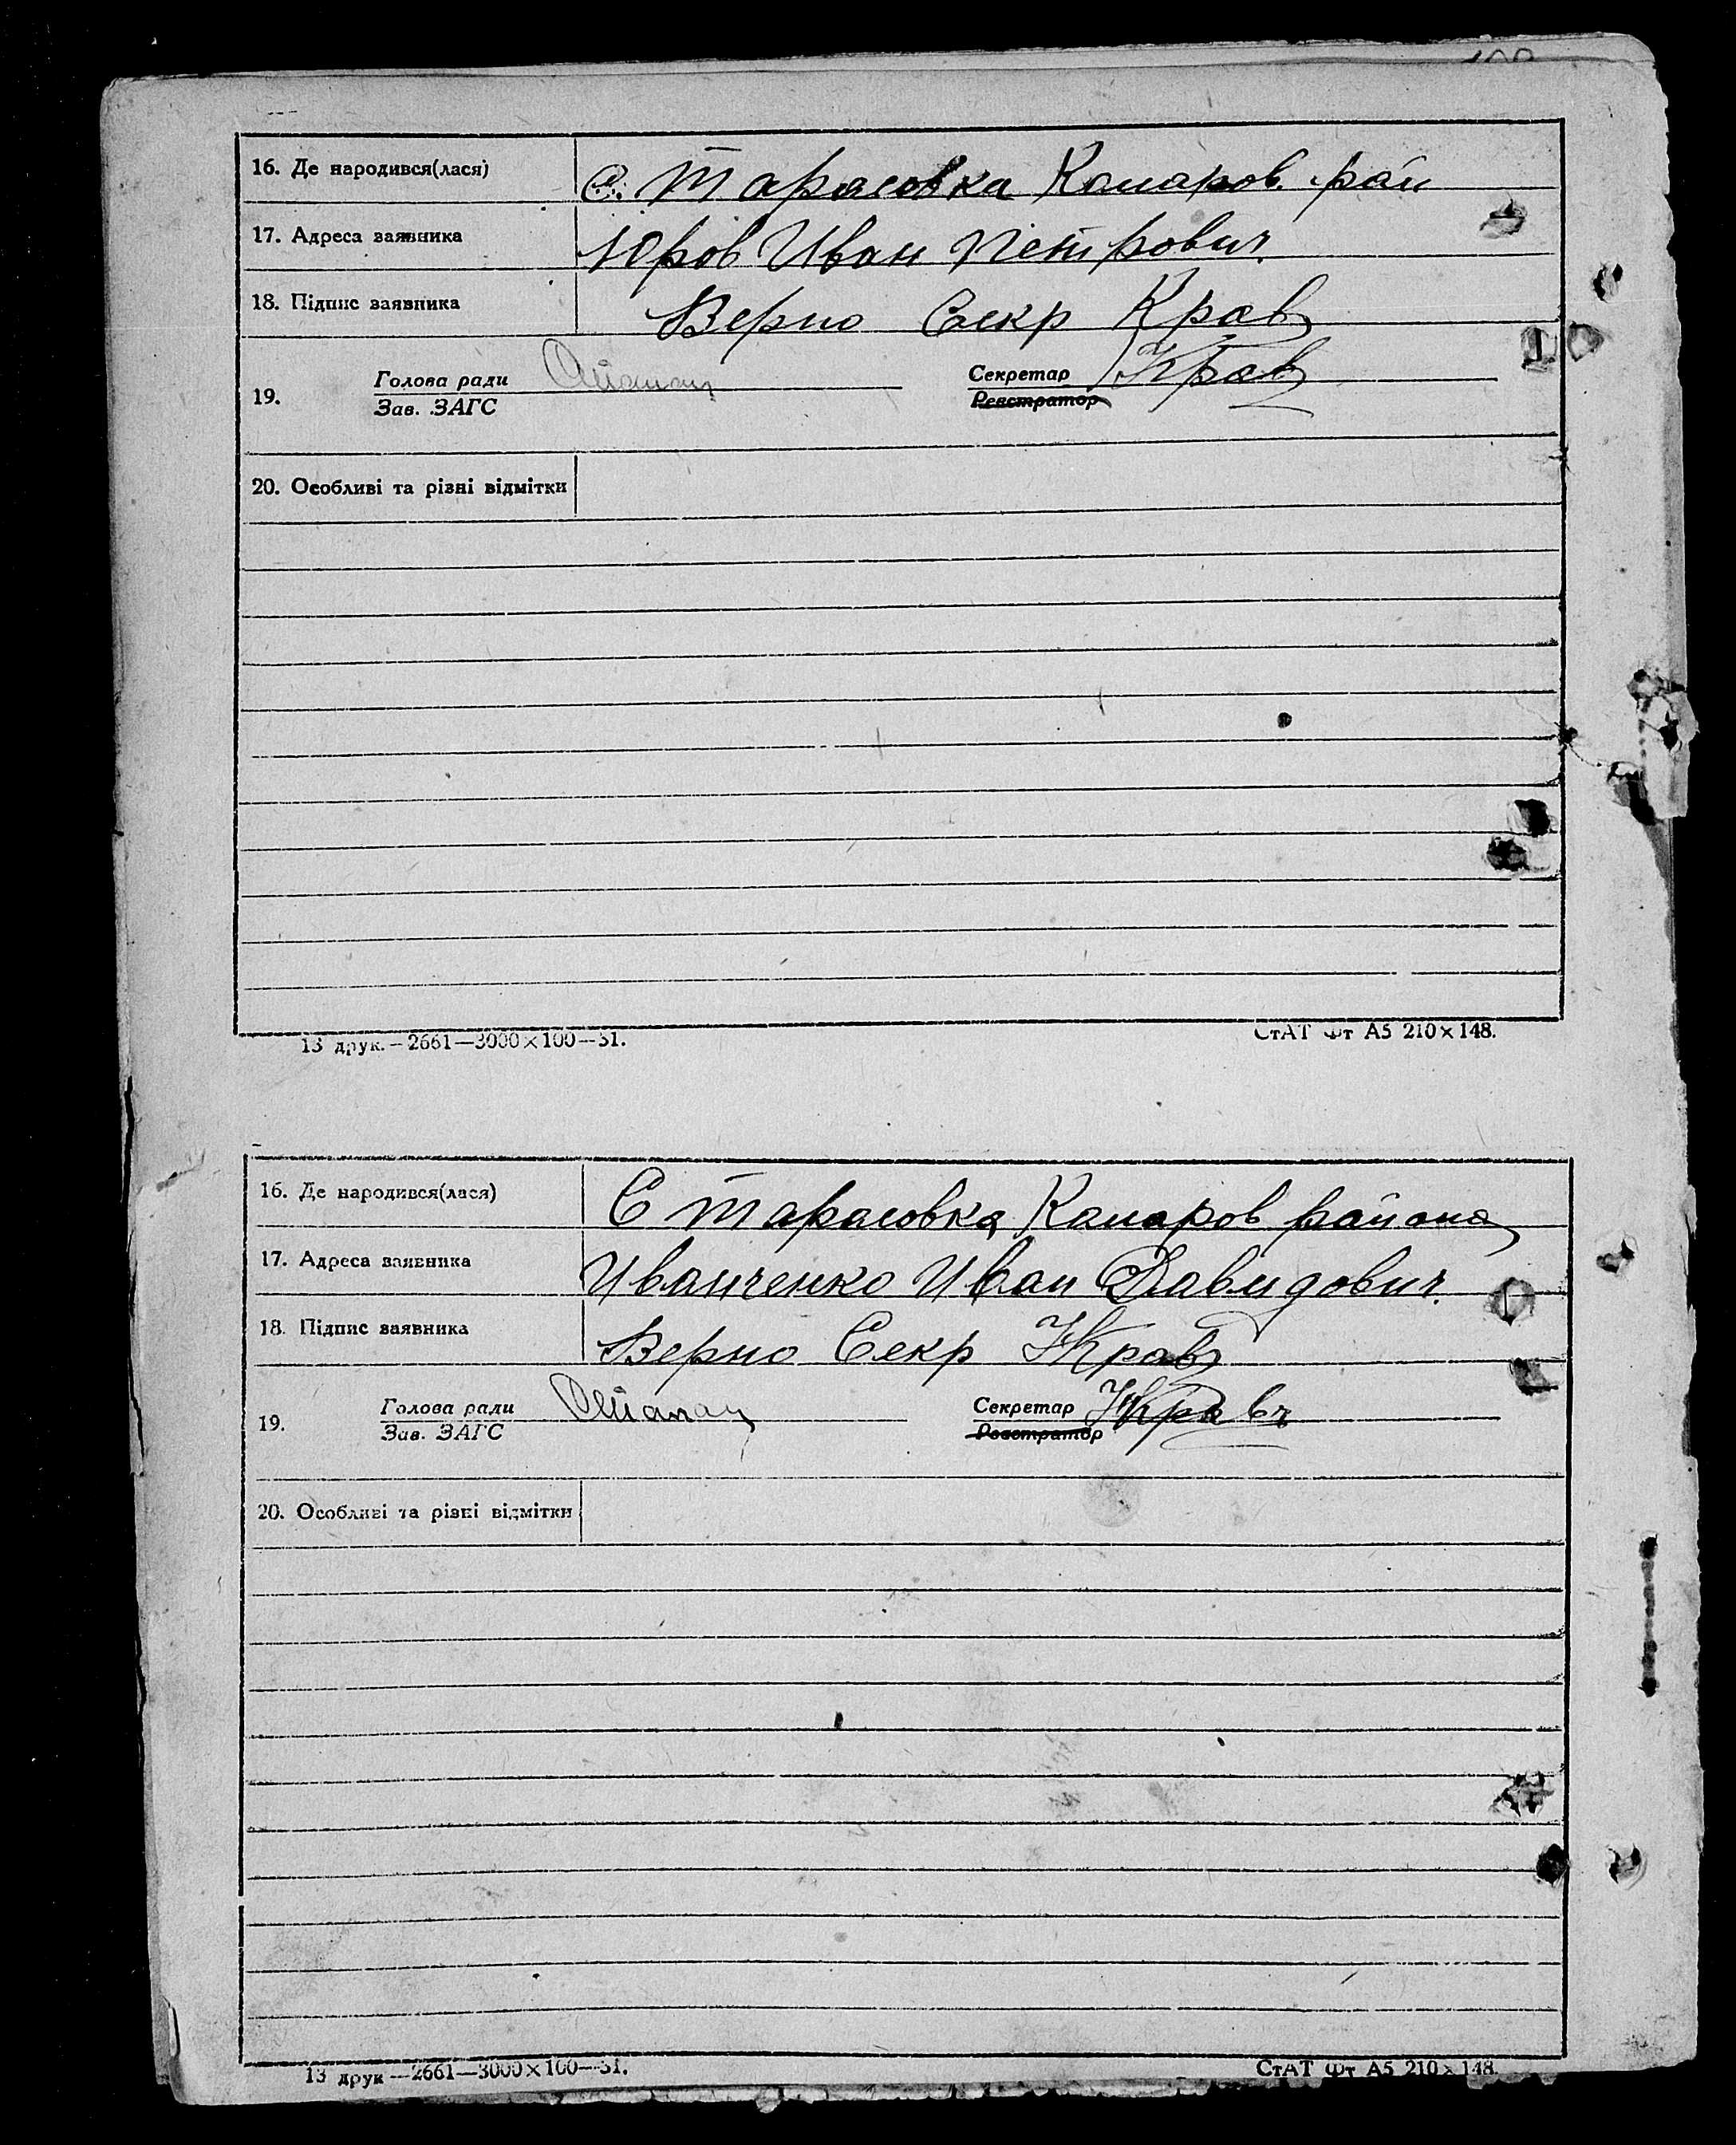 16. Де народився(лася) с. Тарасовка Камаров. рай
17. Адреса заявника Юров Иван Петрович.
18. Підпис заявника Верно Секр Крав
19. Голова ради Секретар Крав
Зав. ЗАГС Реєстратор
20. Особливі та різні відмітки
13 друк.—2661—3000×100—31. СтАТ Фт А5 210×148.
16. Де народився(лася) С Тарасовка Камаров района
17. Адреса заявника Иванченко Иван Давидович.
18. Підпис заявника Верно Секр Крав
19. Голова ради Секретар Кравч
Зав. ЗАГС Реєстратор
20. Особливі та різні відмітки
13 друк—2661—3000×100—31. СтАТ Фт А5 210×148.